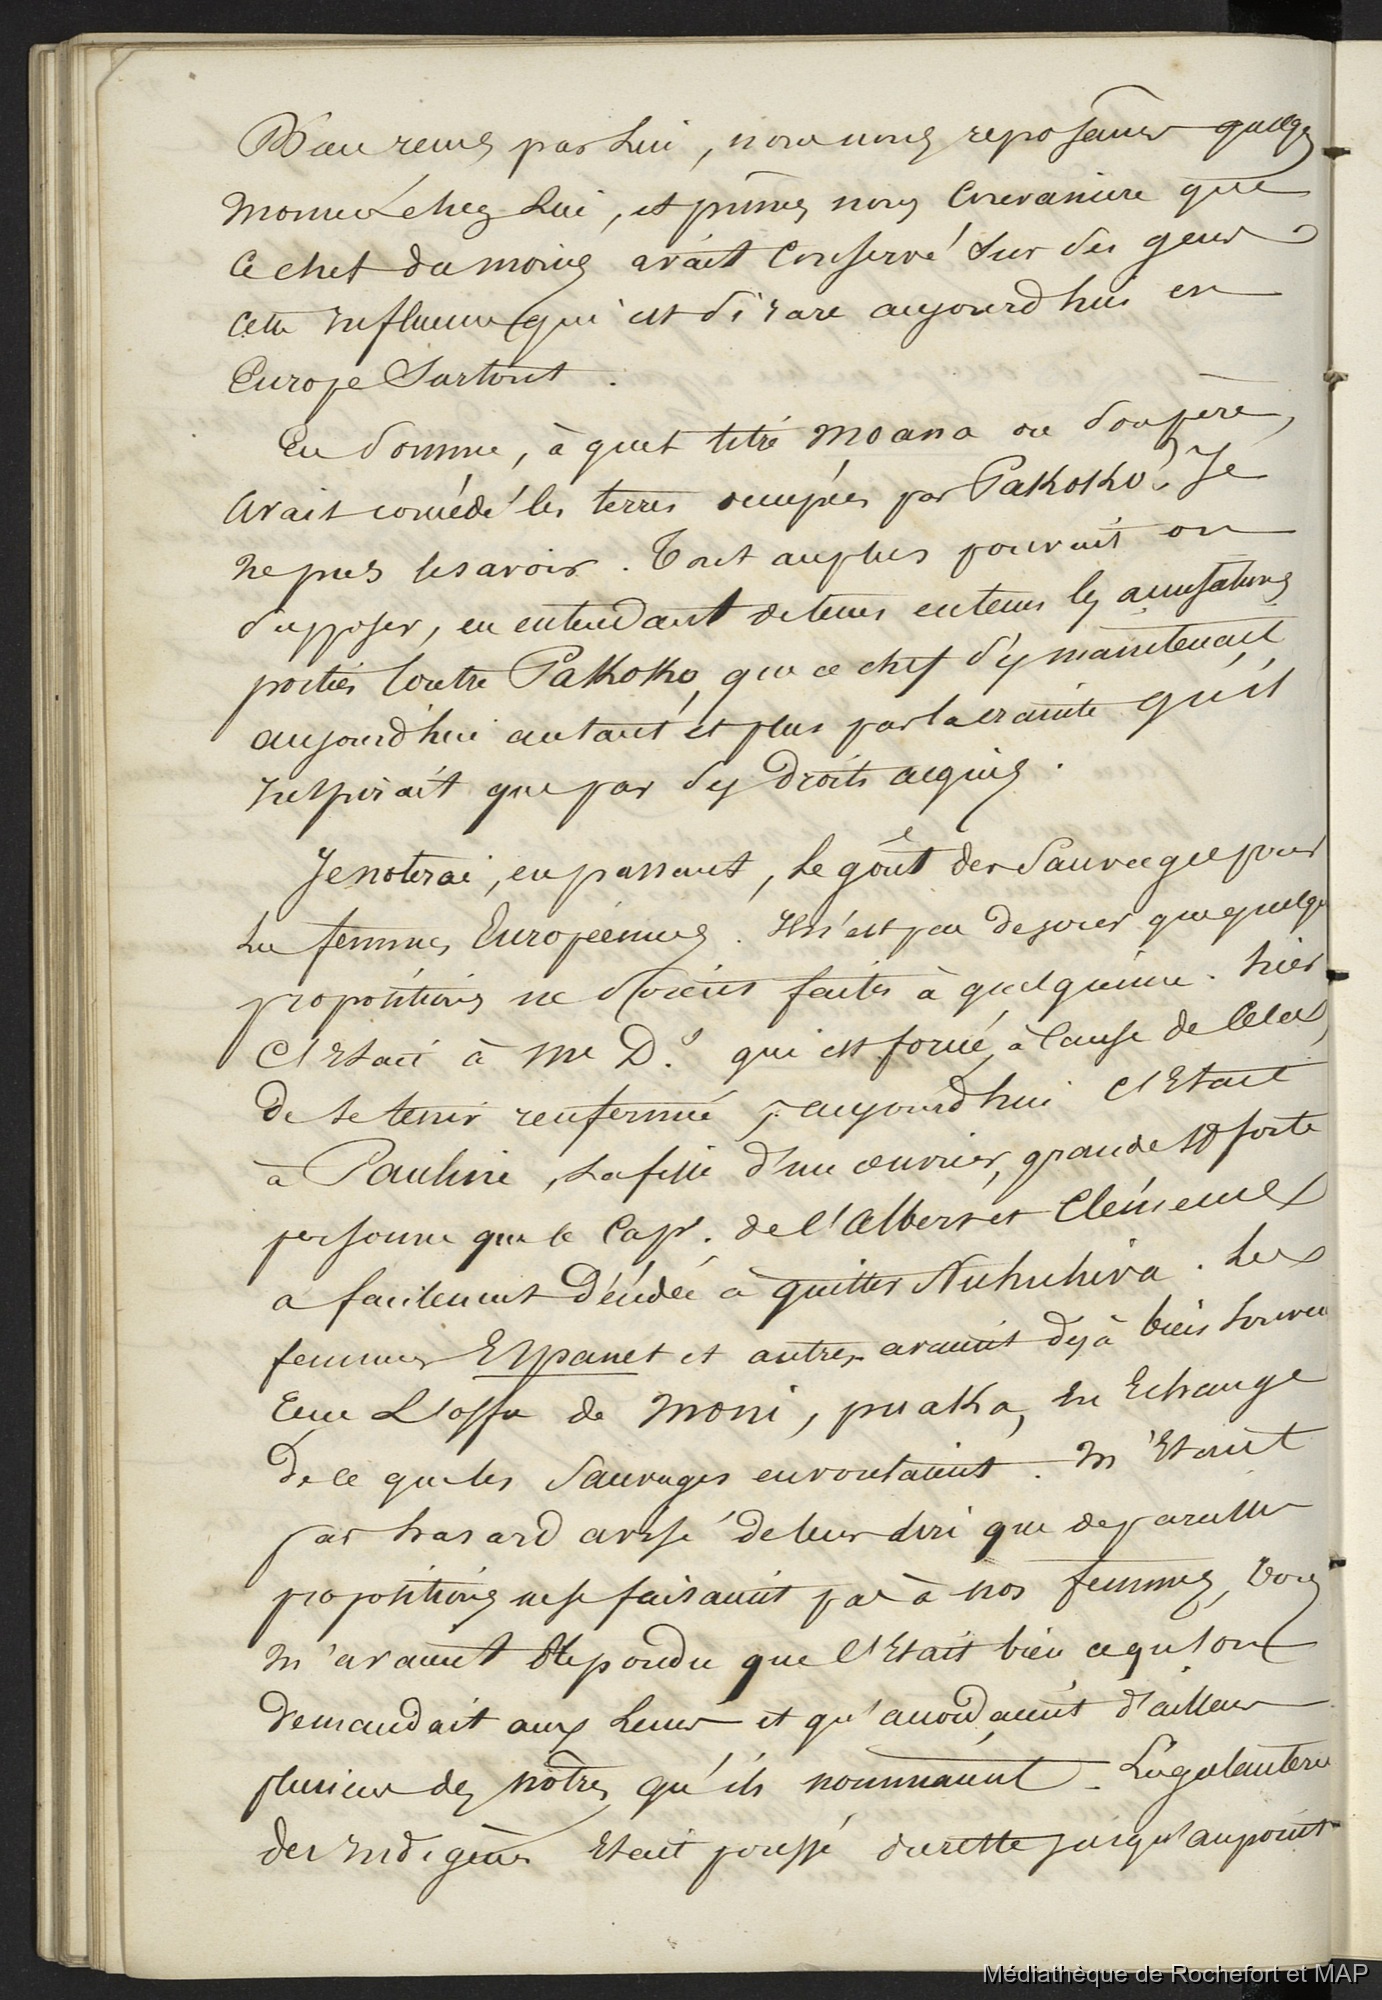 Bien reçus par Lui, nous nous reposâmes quelqs
moments chez Lui, et pûmes nous convaincre que
ce chef du moins avait conservé sur ses gens
cette influence qui est si rare aujourd'hui en
Europe surtout.
En somme, à quel titre Moana ou son père,
avait concédé les terres occupées par Pakoko? Je
ne pus le savoir. Tout au plus pouvait on
supposer, en entendant de tems en tems les accusations
portées contre Pakoko, que ce chef s'y maintenait
aujourd'hui autant et plus par la crainte qu'il
inspirait que par des droits acquis.
Je noterai, en passant, le goût des Sauvages pour
les femmes Européennes. Il n'est pas de jour que quelqs
propositions ne soient faites à quelqu'une. hier
c'était à Me D. qui est forcée, à cause de cela,
de se tenir renfermée; aujourd'hui c'était
à Pauline, la fille d'un ouvrier, grande et forte
personne que le Capt. de l'Albert et Clémence
a facilement décidée à quitter Nuhuhiva. Les
femmes Espanet et autres avaient déjà bien souven
eu l'offre de moni, puaka, en échange
de ce que les sauvages en voulaient. M'étant
par hasard avisé de leur dire que de pareilles
propositions ne se faisaient pas à nos femmes, tous
m'avaient répondu que c'était bien ce qu'on
demandait aux leurs et qu'accordaient d'ailleurs
plusieurs des nôtres qu'ils nommaient. La galanterie
des indigènes était poussé du reste jusqu'au point
Médiathèque de Rochefort et MAP